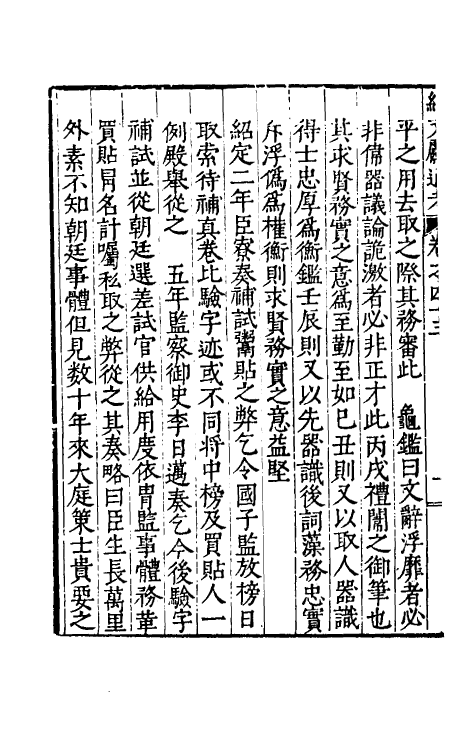 平之用去取之際其務審此　龜鑑曰文辭浮靡者必
非偹器議論詭激者必非正才此丙戌禮闈之御筆也
其求賢務實之意爲至勤至如己丑則又以取人噐識
得士忠厚爲衡鑑壬辰則又以先器識後詞藻務忠實
斥浮僞爲權衡則求賢務實之意益堅
紹定二年臣寮奏補試鬻貼之弊乞令國子監放榜日
取索待補真卷比驗字迹或不同將中榜及買貼人一
例殿舉從之　五年監察御史李日邁奏乞今後驗字
補試並從朝廷選差試官供給用度依胄監事體務革
買貼冐名計囑私取之弊從之其奏略曰臣生長萬里
外素不知朝廷事體但見数十年來大庭策士貴要之